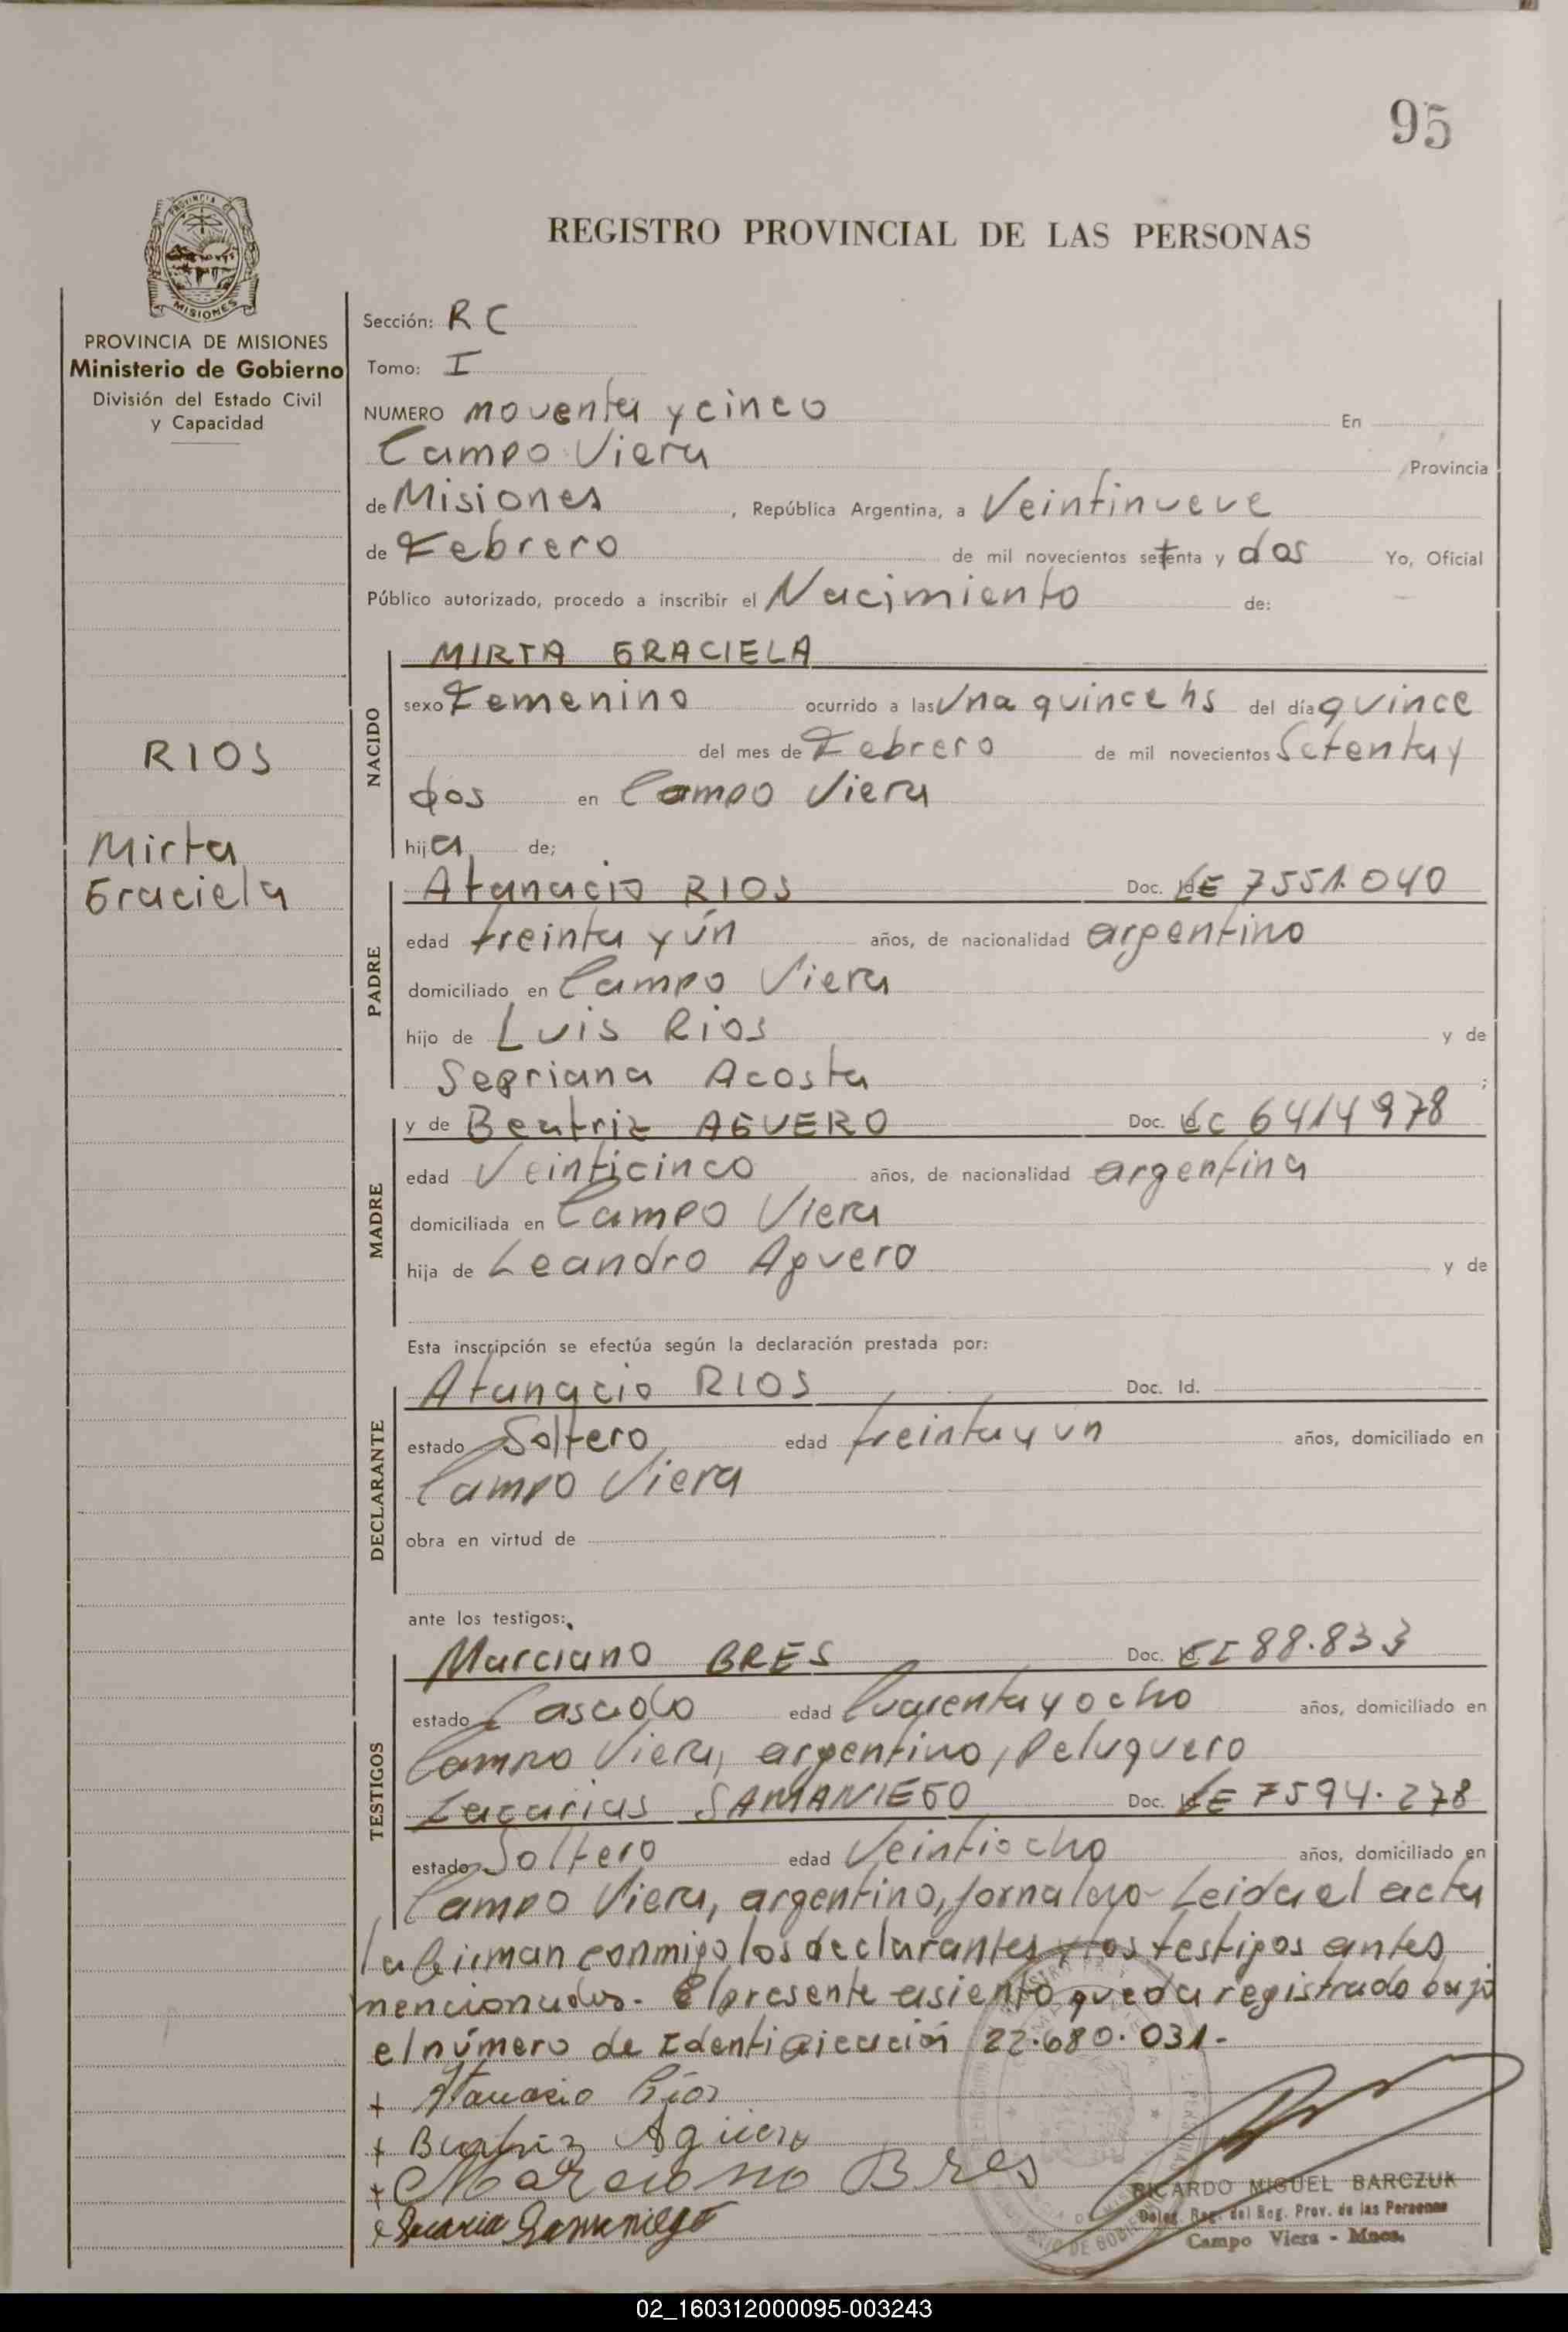 95
REGISTRO PROVINCIAL DE LAS PERSONAS
MISIONES
PROVINCIA DE MISIONES
Ministerio de Gobierno
División del Estado Civil
y Capacidad
RIOS
Mirta
Graciela
Sección: RC
Tomo: I
NUMERO noventa y cinco En
Campo Viera Provincia
de Misiones, República Argentina, a Veintinueve
de Febrero de mil novecientos setenta y dos Yo, Oficial
Público autorizado, procedo a inscribir el Nacimiento de:
NACIDO
MIRTA GRACIELA
sexo Femenino ocurrido a las Una quince hs del día quince
del mes de Febrero de mil novecientos Setenta y
dos en Campo Viera
hija de;
PADRE
Atanacio RIOS Doc. LE 7551.040
edad treinta y ún años, de nacionalidad argentino
domiciliado en Campo Viera
hijo de Luis Rios y de
Sepriana Acosta ;
MADRE
y de Beatriz AGUERO Doc. LC 6414978
edad Veinticinco años, de nacionalidad argentina
domiciliada en Campo Viera
hija de Leandro Aguero y de
Esta inscripción se efectúa según la declaración prestada por:
DECLARANTE
Atanacio RIOS Doc. Id.
estado Soltero edad treinta y un años, domiciliado en
Campo Viera
obra en virtud de
ante los testigos:
TESTIGOS
Marciano BRES Doc. CI 88.833
estado Casado edad Cuarenta y ocho años, domiciliado en
Campo Viera, argentino, Peluquero
Zacarias SAMANIEGO Doc. LE 7594.278
estado Soltero edad Veintiocho años, domiciliado en
Campo Viera, argentino, jornalero - Leida el acta
la firman conmigo los declarantes y los testigos antes
mencionados. El presente asiento queda registrado bajo
el número de Identificación 22.680.031.-
+ Atanacio Ríos
+ Beatriz Agüero
+ Marciano Bres
Zacaria Samaniego
RICARDO MIGUEL BARCZUK
Deleg. Reg. del Reg. Prov. de las Personas
Campo Viera - Mnes.
02_160312000095-003243